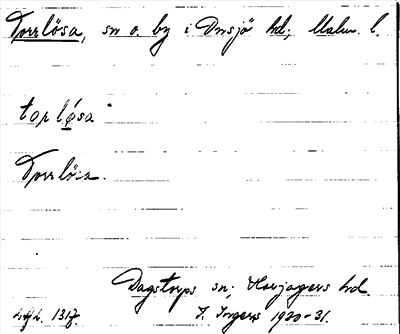 Torrlösa, sn o. by i Onsjö hd; Malm. l.
torlǿsa
Torrlösa.
Dagstorps sn; Harjagers hd.
I. Ingers 1920-31.